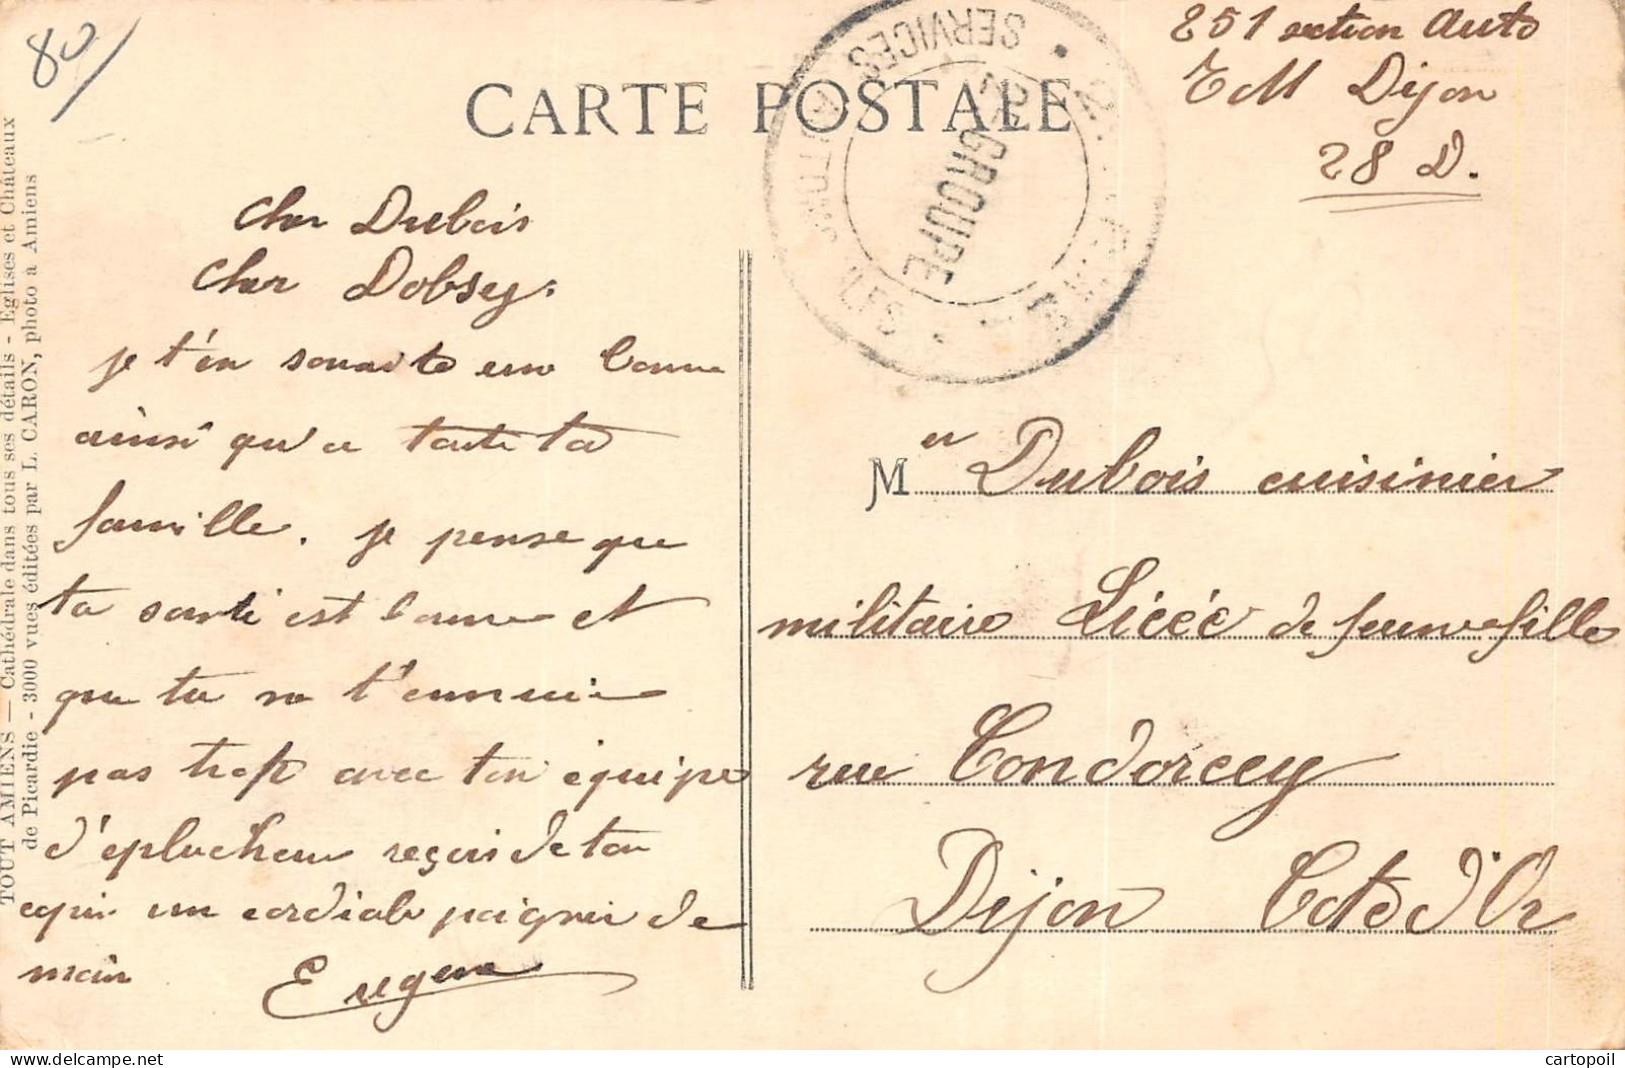 80
251 section Auto
TM Dijon
28 D.
CARTE POSTALE
SERVICES AUTOMOBILES
GROUPE
TOUT AMIENS — Cathédrale dans tous ses détails - Eglises et Châteaux
de Picardie - 3000 vues éditées par L. CARON, photo à Amiens
Cher Dubois
Cher Dobsey.
je t'en souaite une bonne
ainsi qu'a toute ta
famille. je pense que
ta santé est bonne et
que tu ne t'ennuie
pas trop avec ton équipe
d'éplucheur reçois de ton
copin un cordiale poigner de
main Eugene
Mr Dubois cuisinier
militaire Licéé de jeune fille
rue Condorcey
Dijon Cote d'Or
cartopoil